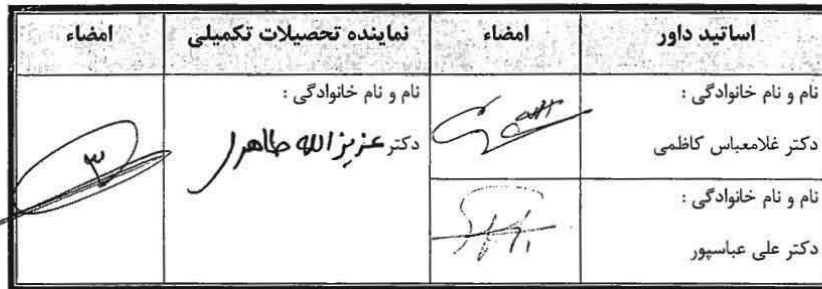 اساتید داور	امضاء	نماینده تحصیلات تکمیلی	امضاء
نام و نام خانوادگی :	نام و نام خانوادگی :
دکتر غلامعباس کاظمی	دکتر عزیزالله طاهری
نام و نام خانوادگی :
دکتر علی عباسپور